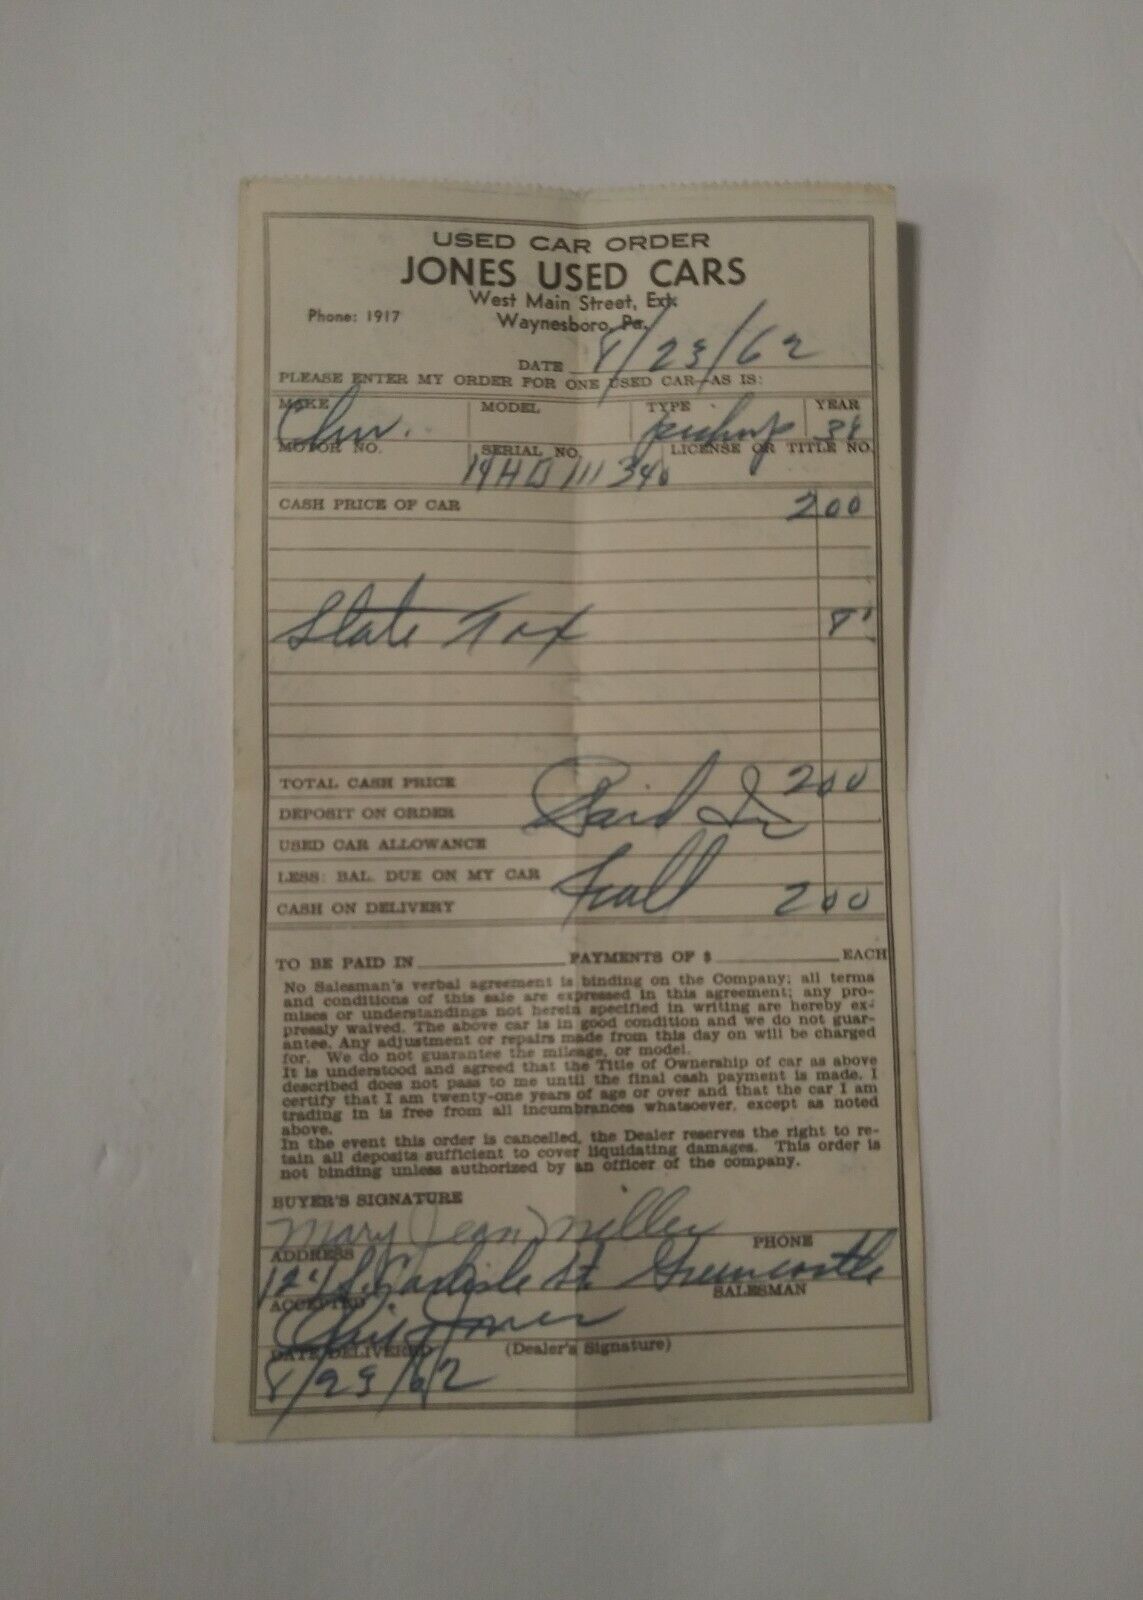 USED CAR ORDER
JONES USED CARS
West Main Street, Ext.
Phone: 1917 Waynesboro, Pa.
DATE 8/23/62
PLEASE ENTER MY ORDER FOR ONE USED CAR—AS IS:
MAKE MODEL TYPE YEAR
pickup
MOTOR NO. SERIAL NO. LICENSE OR TITLE NO.
CASH PRICE OF CAR 200
State Tax
TOTAL CASH PRICE 200
DEPOSIT ON ORDER Paid In
USED CAR ALLOWANCE
LESS: BAL. DUE ON MY CAR Full
CASH ON DELIVERY 200
TO BE PAID IN PAYMENTS OF $ EACH
No Salesman's verbal agreement is binding on the Company; all terms
and conditions of this sale are expressed in this agreement; any pro-
mises or understandings not herein specified in writing are hereby ex-
pressly waived. The above car is in good condition and we do not guar-
antee. Any adjustment or repairs made from this day on will be charged
for. We do not guarantee the mileage, or model.
It is understood and agreed that the Title of Ownership of car as above
described does not pass to me until the final cash payment is made. I
certify that I am twenty-one years of age or over and that the car I am
trading in is free from all incumbrances whatsoever, except as noted
above.
In the event this order is cancelled, the Dealer reserves the right to re-
tain all deposits sufficient to cover liquidating damages. This order is
not binding unless authorized by an officer of the company.
BUYER'S SIGNATURE
Mary Jean Miller
ADDRESS PHONE
S. Carlisle St. Greencastle
ACCEPTED SALESMAN
Jones
DATE DELIVERED (Dealer's Signature)
8/23/62